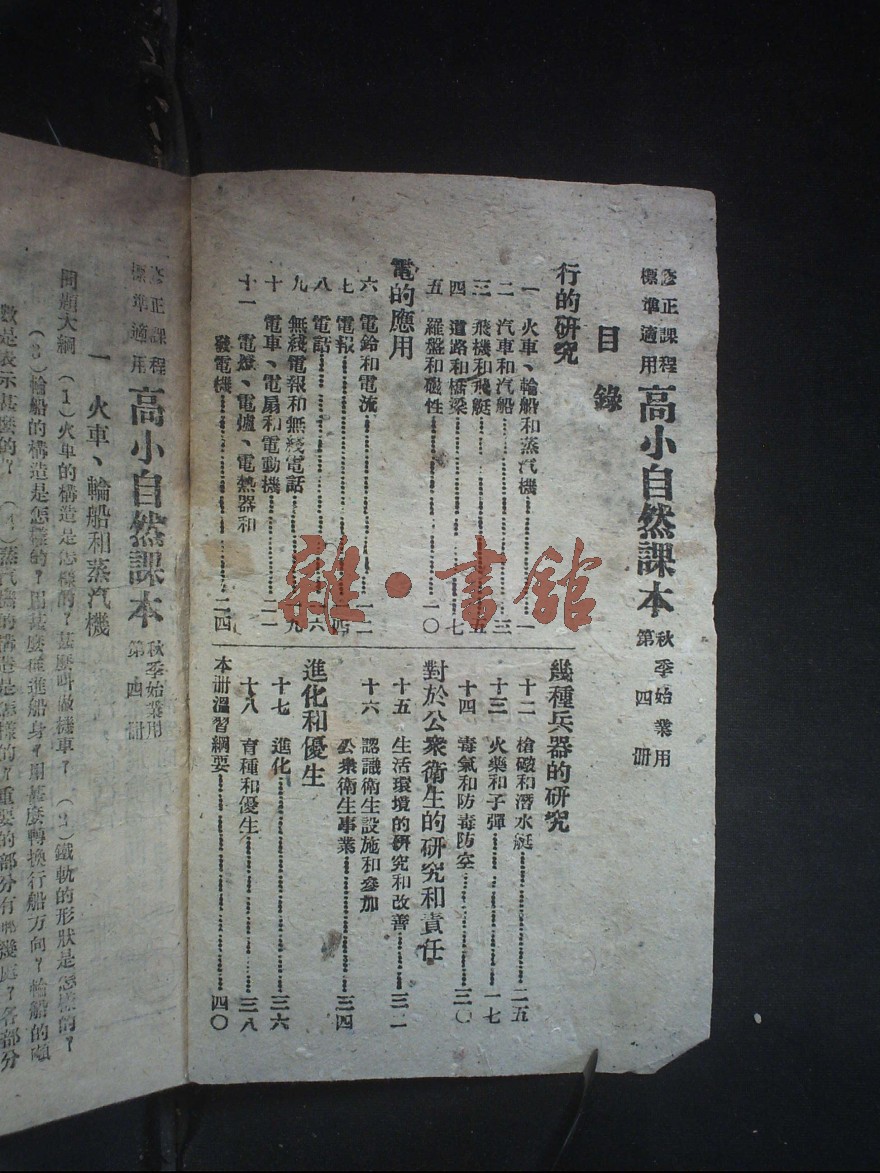 修正課程
標準適用
高小自然課本
秋季始業用
第四冊
目錄
行的研究
一 火車、輪船和蒸汽機……一
二 汽車和汽船……三
三 飛機和飛艇……五
四 道路和橋梁……七
五 羅盤和磁性……一〇
電的應用
六 電鈴和電流……一二
七 電報……四
八 電話……六
九 無綫電報和無綫電話……九
十 電車、電扇和電動機……二一
十一 電燈、電爐、電熱器和
發電機……二四
幾種兵器的研究
十二 槍礮和潛水艇……二五
十三 火藥和子彈……一七
十四 毒氣和防毒防空……三〇
對於公衆衛生的研究和責任
十五 生活環境的研究和改善……三二
十六 認識衛生設施和參加
公衆衛生事業……三四
進化和優生
十七 進化……三六
十八 育種和優生……三八
本冊溫習綱要……四〇
雜·書館
修正課程
標準適用
高小自然課本
秋季始業用
第四冊
一 火車、輪船和蒸汽機
問題大綱 (1)火車的構造是怎樣的?甚麼叫做機車? (2)鐵軌的形狀是怎樣的?
(3)輪船的構造是怎樣的?用甚麼推進船身?用甚麼轉換行船方向?輪船的噸
數是表示甚麼的? (4)蒸汽機的構造是怎樣的?重要的部分有哪幾處?各部分